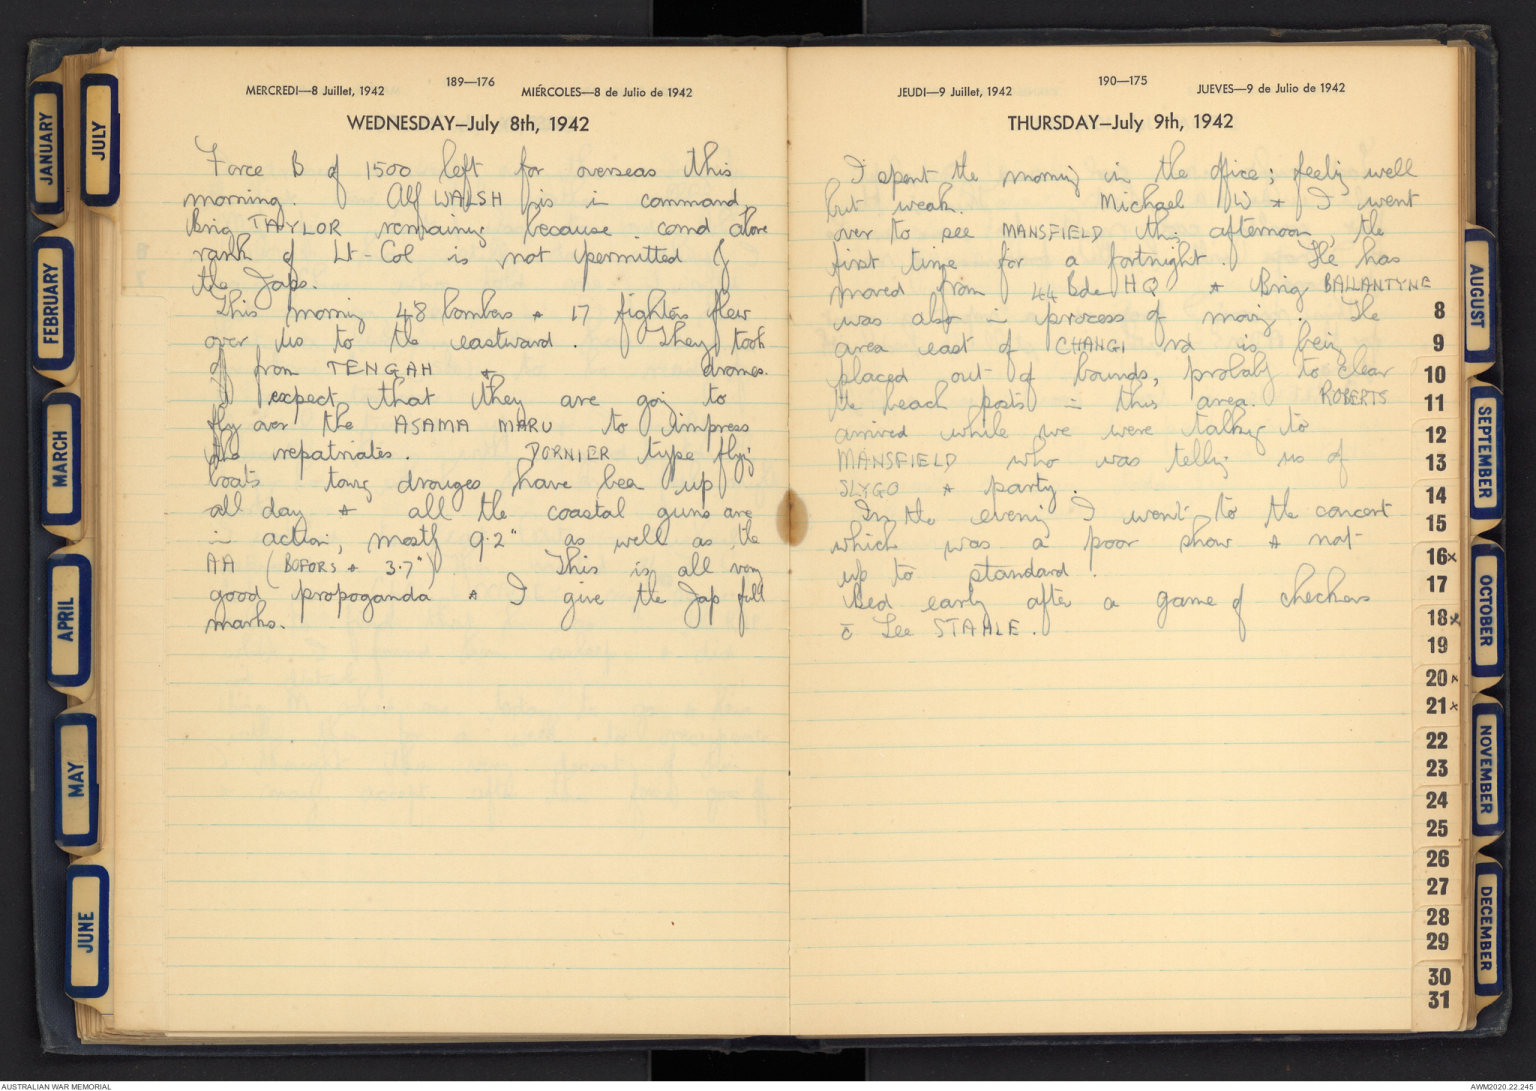 JANUARY
FEBRUARY
MARCH
APRIL
MAY
JUNE
JULY
189—176
MERCREDI—8 Juillet, 1942
MIÉRCOLES—8 de Julio de 1942
WEDNESDAY—July 8th, 1942
Force B of 1500 left for overseas this
morning. Alf WALSH is in command,
Brig TAYLOR remaining because comd above
rank of Lt-Col is not permitted by
the Japs.
This morning 48 bombers & 17 fighters flew
over us to the eastward. They took
off from TENGAH & dromes.
I expect that they are going to
fly over the ASAMA MARU to impress
the repatriates. DORNIER type flying
boats towing drouges have been up
all day & all the coastal guns are
in action, mostly 9.2" as well as the
AA (BOFORS & 3.7") This is all very
good propoganda & I give the Jap full
marks.
190—175
JEUDI—9 Juillet, 1942
JUEVES—9 de Julio de 1942
THURSDAY—July 9th, 1942
I spent the morning in the office; feeling well
but weak. Michael W & I went
over to see MANSFIELD this afternoon, the
first time for a fortnight. He has
moved from 44 Bde HQ & Brig BALLANTYNE
was also in process of moving. The
area east of CHANGI rd is being
placed out of bounds, probably to clear
the beach posts in this area. ROBERTS
arrived while we were talking to
MANSFIELD who was telling us of
SLYGO & party.
In the evening I went to the concert
which was a poor show & not
up to standard.
Bed early after a game of checkers
c̄ Lee STAHLE.
8
9
10
11
12
13
14
15
16x
17
18x
19
20x
21x
22
23
24
25
26
27
28
29
30
31
AUGUST
SEPTEMBER
OCTOBER
NOVEMBER
DECEMBER
AUSTRALIAN WAR MEMORIAL
AWM2020.22.245